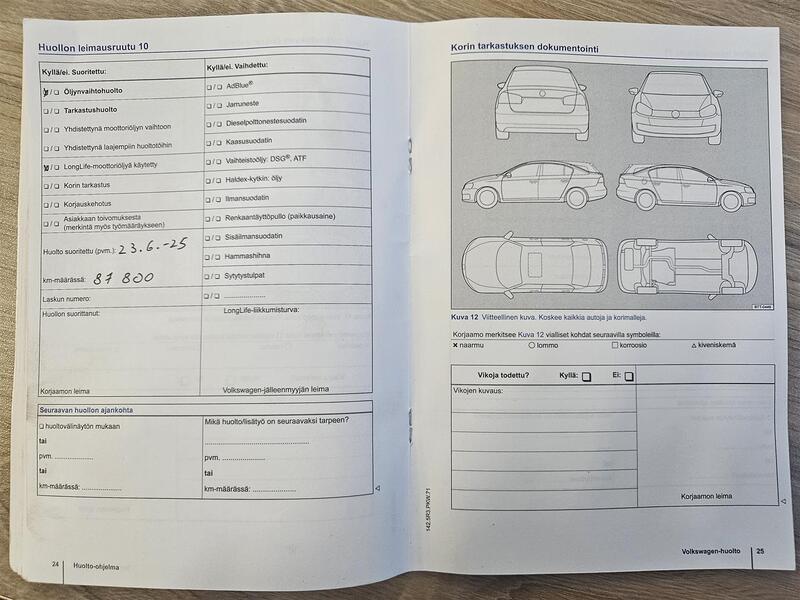 Huollon leimausruutu 10
Kyllä/ei. Suoritettu:
☒ / ❏ Öljynvaihtohuolto
❏ / ❏ Tarkastushuolto
❏ / ❏ Yhdistettynä moottoriöljyn vaihtoon
❏ / ❏ Yhdistettynä laajempiin huoltotöihin
☒ / ❏ LongLife-moottoriöljyä käytetty
❏ / ❏ Korin tarkastus
❏ / ❏ Korjauskehotus
❏ / ❏ Asiakkaan toivomuksesta
(merkintä myös työmääräykseen)
Huolto suoritettu (pvm.): 23.6.-25
km-määrässä: 87 800
Laskun numero:
Huollon suorittanut:
Korjaamon leima
Kyllä/ei. Vaihdettu:
❏ / ❏ AdBlue®
❏ / ❏ Jarruneste
❏ / ❏ Dieselpolttonestesuodatin
❏ / ❏ Kaasusuodatin
❏ / ❏ Vaihteistoöljy: DSG®, ATF
❏ / ❏ Haldex-kytkin: öljy
❏ / ❏ Ilmansuodatin
❏ / ❏ Renkaantäyttöpullo (paikkausaine)
❏ / ❏ Sisäilmansuodatin
❏ / ❏ Hammashihna
❏ / ❏ Sytytystulpat
❏ / ❏ ......................
LongLife-liikkumisturva:
Volkswagen-jälleenmyyjän leima
Seuraavan huollon ajankohta
❏ huoltovälinäytön mukaan
tai
pvm. ....................
tai
km-määrässä: ....................
Mikä huolto/lisätyö on seuraavaksi tarpeen?
........................................
pvm. ......................
tai
km-määrässä: ......................
24
Huolto-ohjelma
Korin tarkastuksen dokumentointi
B1T-0449
Kuva 12 Viitteellinen kuva. Koskee kaikkia autoja ja korimalleja.
Korjaamo merkitsee Kuva 12 vialliset kohdat seuraavilla symboleilla:
× naarmu ○ lommo □ korroosio △ kiveniskemä
Vikoja todettu? Kyllä: ❏ Ei: ❏
Vikojen kuvaus:
Korjaamon leima
142.5R3.PKW.71
Volkswagen-huolto
25